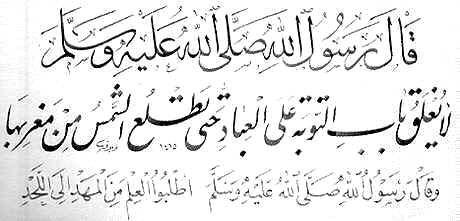 قَالَ رَسُولُ اللهِ صَلَّى اللهُ عَلَيْهِ وَسَلَّمَ
لَا يُغْلَقُ بَابُ التَّوْبَةِ عَلَى الْعِبَادِ حَتَّى تَطْلُعَ الشَّمْسُ مِنْ مَغْرِبِهَا
وَقَالَ رَسُولُ اللهِ صَلَّى اللهُ عَلَيْهِ وَسَلَّمَ اطْلُبُوا الْعِلْمَ مِنَ الْمَهْدِ إِلَى اللَّحْدِ